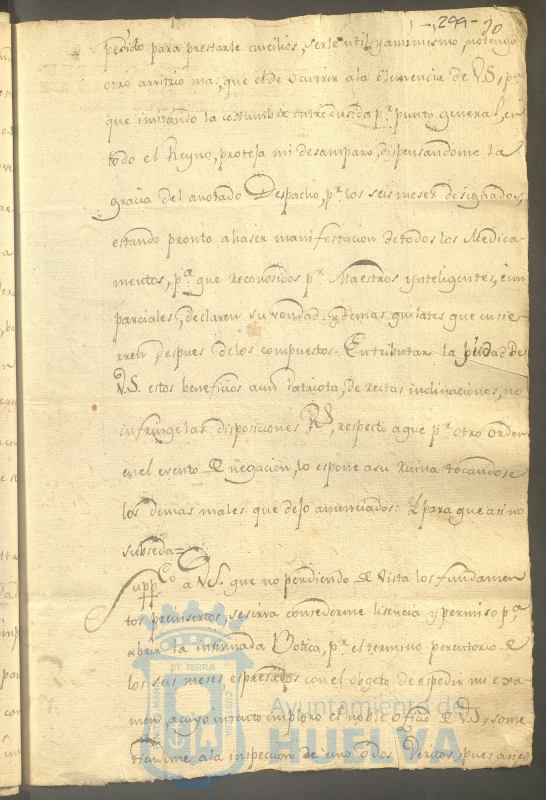 299 20
pedido para prestarle aucilios, serle util, y aminismo, no tengo
otro arvitrio mas, que el de ocurrir ala Clemencia de V.S, pª
que imitando la costumbre introdusida pʳ punto general, en
todo el Reyno, proteja mi desamparo, dispensandome la
gracia del anotado Despacho, pʳ los seis meses designados,
estando pronto a haser manifestacion de todos los Medica-
mentos, pª que reconosidos pʳ Maestros ynteligentes, e im-
parciales, declaren su vondad, y demas quilates que ensie-
rren despues de los compuestos. En tributar la piedad de
V.S. estos beneficios a un Patriota, de rectas inclinaciones, no
infringe las disposiciones Rˢ, respecto a que pʳ otro orden
en el evento de negacion, lo espone a su Ruina tocandose
los demas males que dejo anunciados: Y para que asi no
subseda=
Suppᶜᵒ a V.S. que no perdiendo de vista los fundamen
tos preinsertos, se sirva consederme lisencia y permiso pª
abrir la insinuada Botica, pʳ el termino perentorio de
los seis meses espresados con el objeto de espedir mi exa-
men, acuyo intento imploro el noble Officio de V.S, some
tiendome ala inspeccion de uno o dos Peritos, pues a
ET TERRÆ
CUSTODIA
Ayuntamiento de
HUELVA